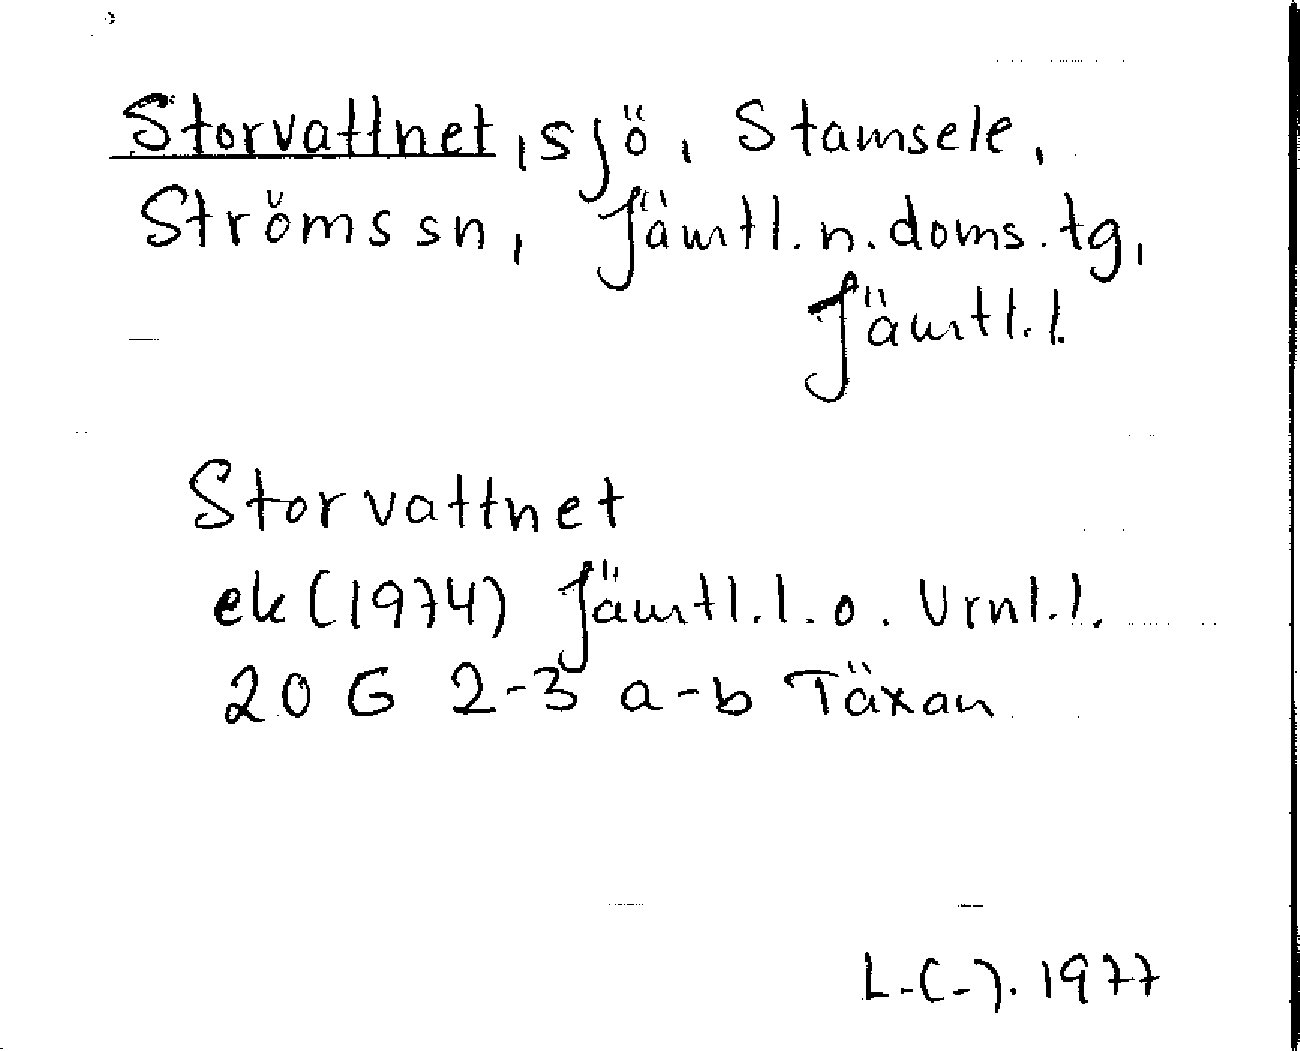 Storvattnet, sjö, Stamsele,
Ströms sn, Jämtl. n. doms. tg,
Jämtl. l.
Storvattnet
ek (1974) Jämtl. l. o. Vrnl. l.
20 G 2-3 a-b Täxan
L-C-J. 1977